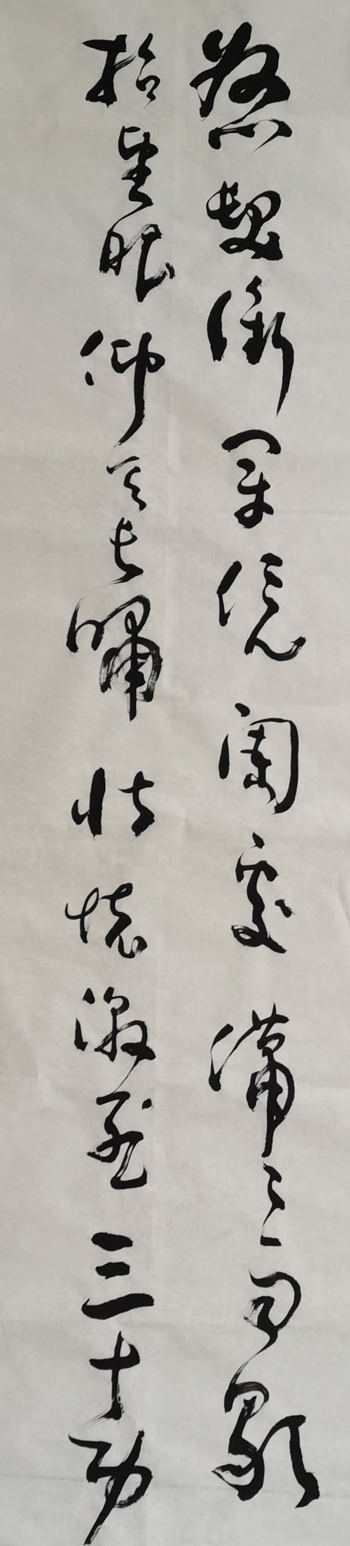 怒髮衝冠憑闌處瀟瀟雨歇
抬望眼仰天長嘯壯懷激烈三十功